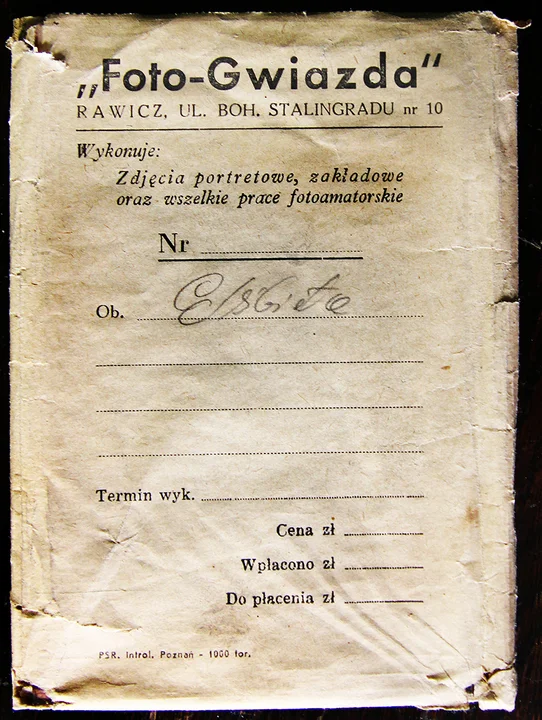 „Foto-Gwiazda"
RAWICZ, UL. BOH. STALINGRADU nr 10
Wykonuje:
Zdjęcia portretowe, zakładowe
oraz wszelkie prace fotoamatorskie
Nr
Ob. Elżbieta
Termin wyk.
Cena zł
Wpłacono zł
Do płacenia zł
PSR. Introl. Poznań - 1000 tor.